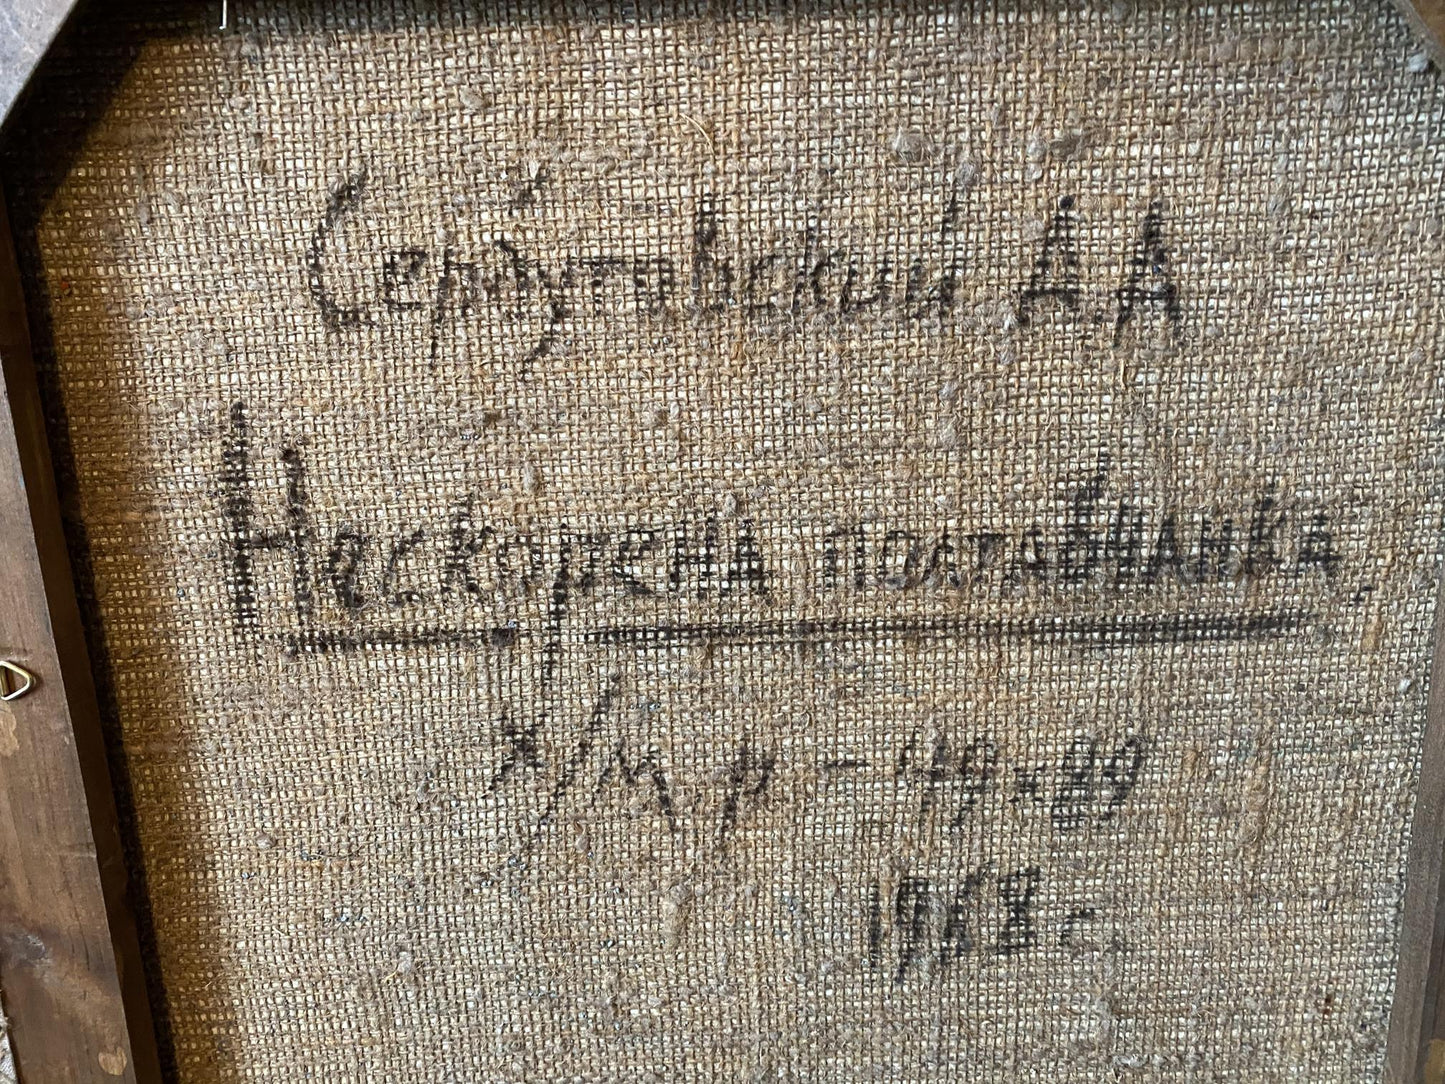 Сердутовский А.А
Нескорена полтавчанка
х/м р - 79 × 89
1968 г.